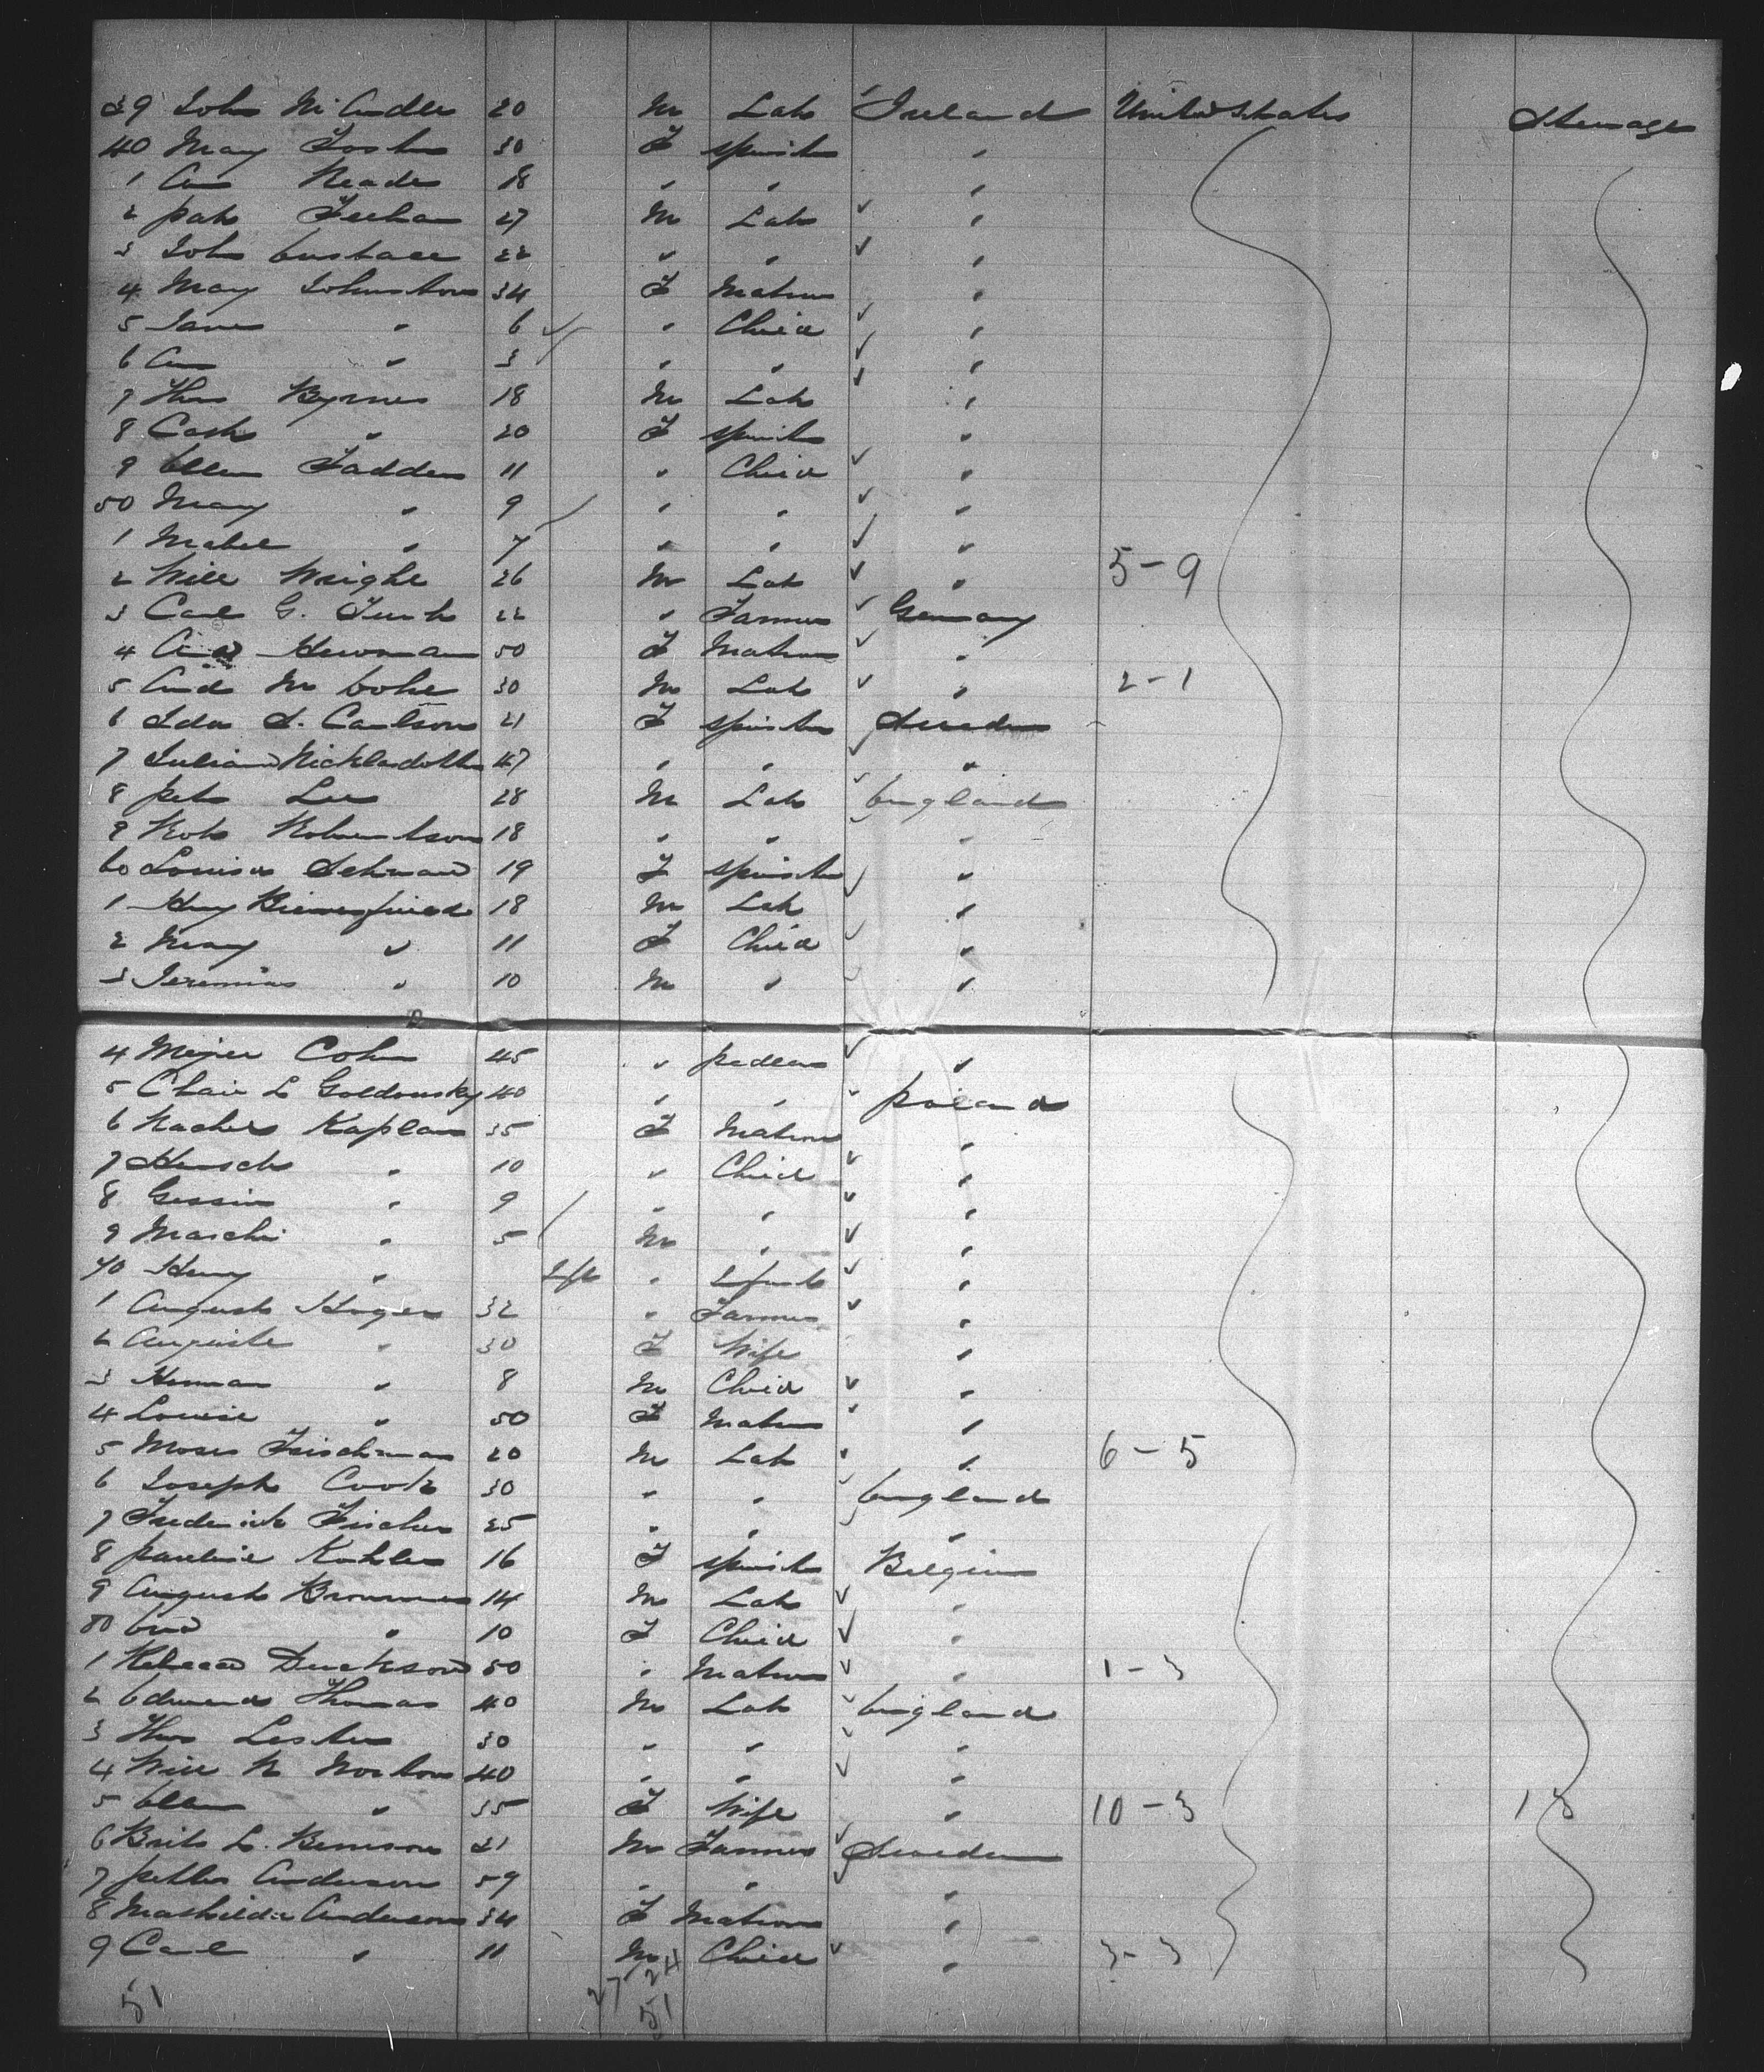 39 John McArdle 20 M Lab Ireland United States Steerage
40 Mary Foster 30 F Spinster "
1 Ann Reade 18 " " "
2 Pat Feehan 27 M Lab "
3 John Eustace 22 " " "
4 Mary Johnston 34 F Matron "
5 Jane " 6 " Child "
6 Ann " 3 " " "
7 Thos Byrnes 18 M Lab "
8 Cath " 20 F Spinster "
9 Ellen Fadden 11 " Child "
50 Mary " 9 " " "
1 Mabel " 7 " " "
2 Will Wright 26 M Lab " 5-9
3 Carl G. 22 " Farmer Germany
4 50 F Matron "
5 And M 30 M Lab " 2-1
6 Ida S. Carlson 21 F Spinster Sweden
7 47 " " "
8 Pat Lee 28 M Lab England
9 Rob Robertson 18 " " "
60 Louisa 19 F Spinster "
1 Hy 18 M Lab "
2 Mary " 11 F Child "
3 Jeremias " 10 M " "
4 Meyer Cohn 45 " Pedlar "
5 L Goldonsky 40 " " Poland
6 Kaplan 35 F Matron "
7 Hirsch " 10 " Child "
8 Gessin " 9 " " "
9 Maschi " 5 M " "
70 Henry " Inft " Infant "
1 August Hoger 32 " Farmer "
2 Auguste " 30 F Wife "
3 Herman " 8 M Child "
4 Louise " 50 F Matron "
5 Moses Fischman 20 M Lab " 6-5
6 Joseph Cook 30 " " England
7 Frederick Fischer 25 " " "
8 Pauline Kohler 16 F Spinster Belgium
9 August 14 M Lab "
80 " 10 F Child "
1 50 " Matron " 1-3
2 Edward Thomas 40 M Lab England
3 Thos Lester 30 " " "
4 Will Norton 40 " " "
5 Ellen " 35 F Wife " 10-3 13
6 L. 21 M Farmer Sweden
7 Anderson 59 " " "
8 Mathilda Anderson 34 F Matron "
9 Carl " 11 M Child " 3-3
51 27 24
51